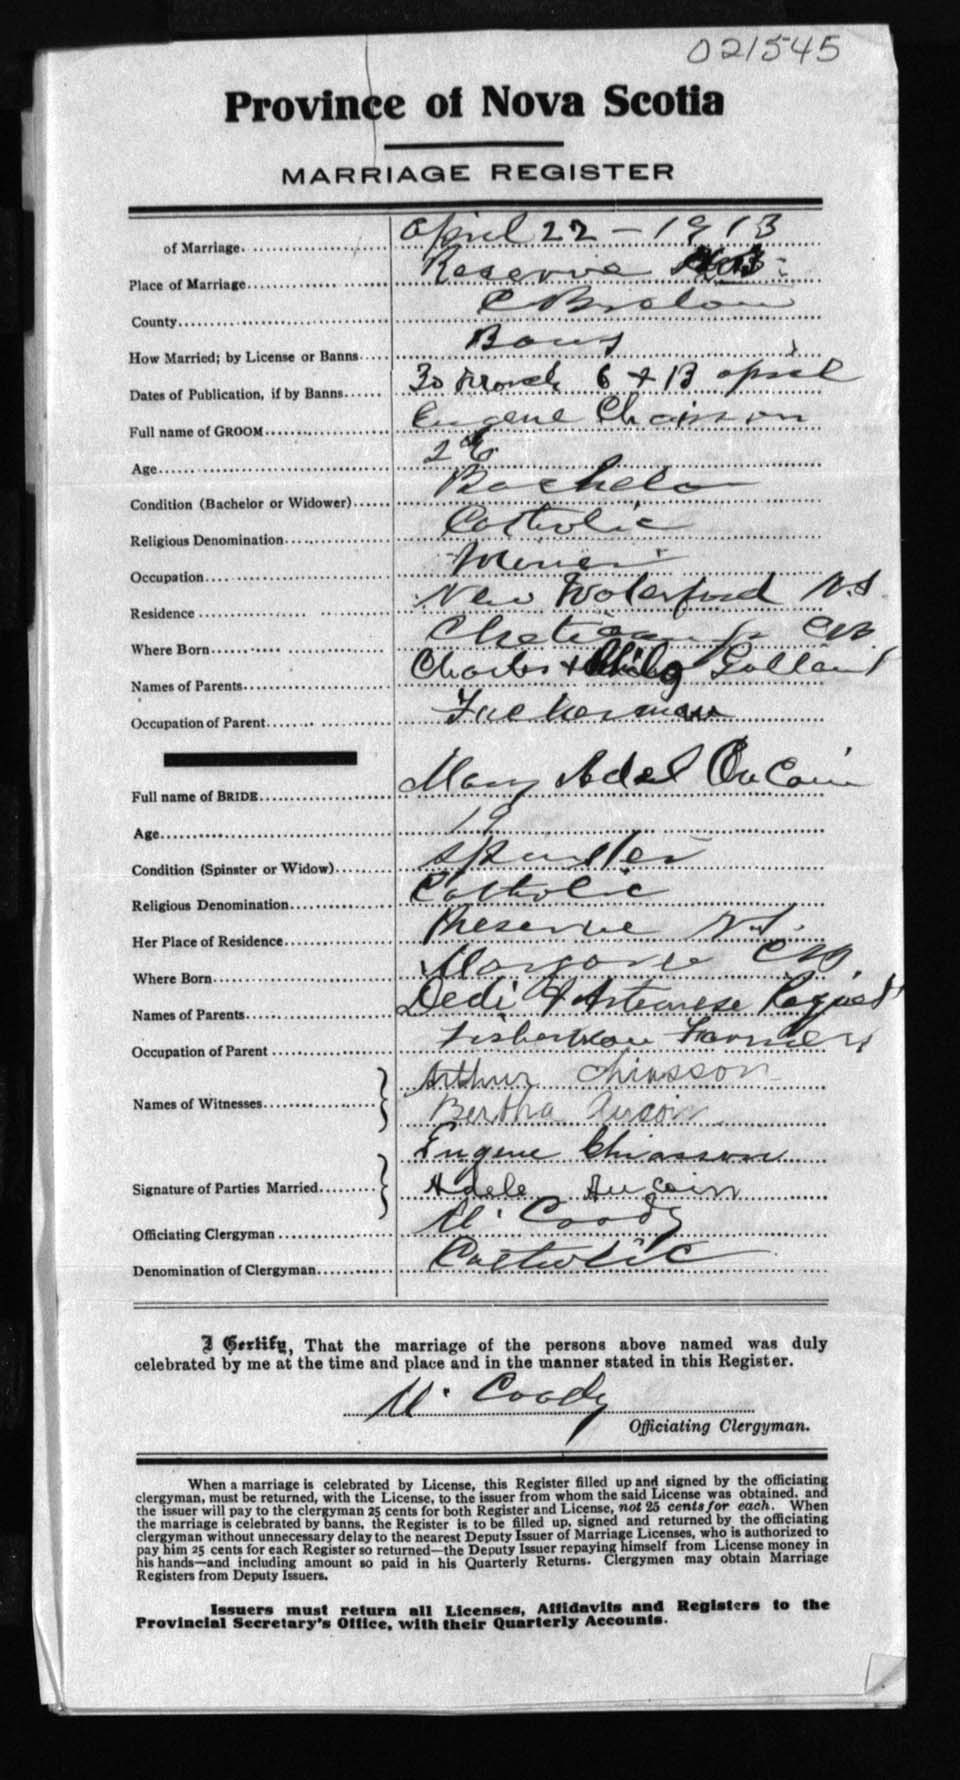 021545
Province of Nova Scotia
MARRIAGE REGISTER
of Marriage April 22 - 1913
Place of Marriage Reserve
County C Breton
How Married; by License or Banns Bans
Dates of Publication, if by Banns 30 March 6 + 13 April
Full name of GROOM Eugene Chaisson
Age 26
Condition (Bachelor or Widower) Bachelor
Religious Denomination Catholic
Occupation Miner
Residence New Waterford N.S.
Where Born Cheticamp CB
Names of Parents Charles + Gallant
Occupation of Parent
Full name of BRIDE Mary Adel AuCoin
Age 19
Condition (Spinster or Widow) Spinster
Religious Denomination Catholic
Her Place of Residence Reserve N.S.
Where Born Margaree CB
Names of Parents Dedi + Artemese
Occupation of Parent Fisherman Farmer
Names of Witnesses Arthur Chiasson
Bertha Aucoin
Signature of Parties Married Eugene Chiasson
Adele Aucoin
Officiating Clergyman M. Coady
Denomination of Clergyman Catholic
I Certify, That the marriage of the persons above named was duly
celebrated by me at the time and place and in the manner stated in this Register.
M. Coady
Officiating Clergyman.
When a marriage is celebrated by License, this Register filled up and signed by the officiating
clergyman, must be returned, with the License, to the issuer from whom the said License was obtained, and
the issuer will pay to the clergyman 25 cents for both Register and License, not 25 cents for each. When
the marriage is celebrated by banns, the Register is to be filled up, signed and returned by the officiating
clergyman without unnecessary delay to the nearest Deputy Issuer of Marriage Licenses, who is authorized to
pay him 25 cents for each Register so returned—the Deputy Issuer repaying himself from License money in
his hands—and including amount so paid in his Quarterly Returns. Clergymen may obtain Marriage
Registers from Deputy Issuers.
Issuers must return all Licenses, Affidavits and Registers to the
Provincial Secretary's Office, with their Quarterly Accounts.